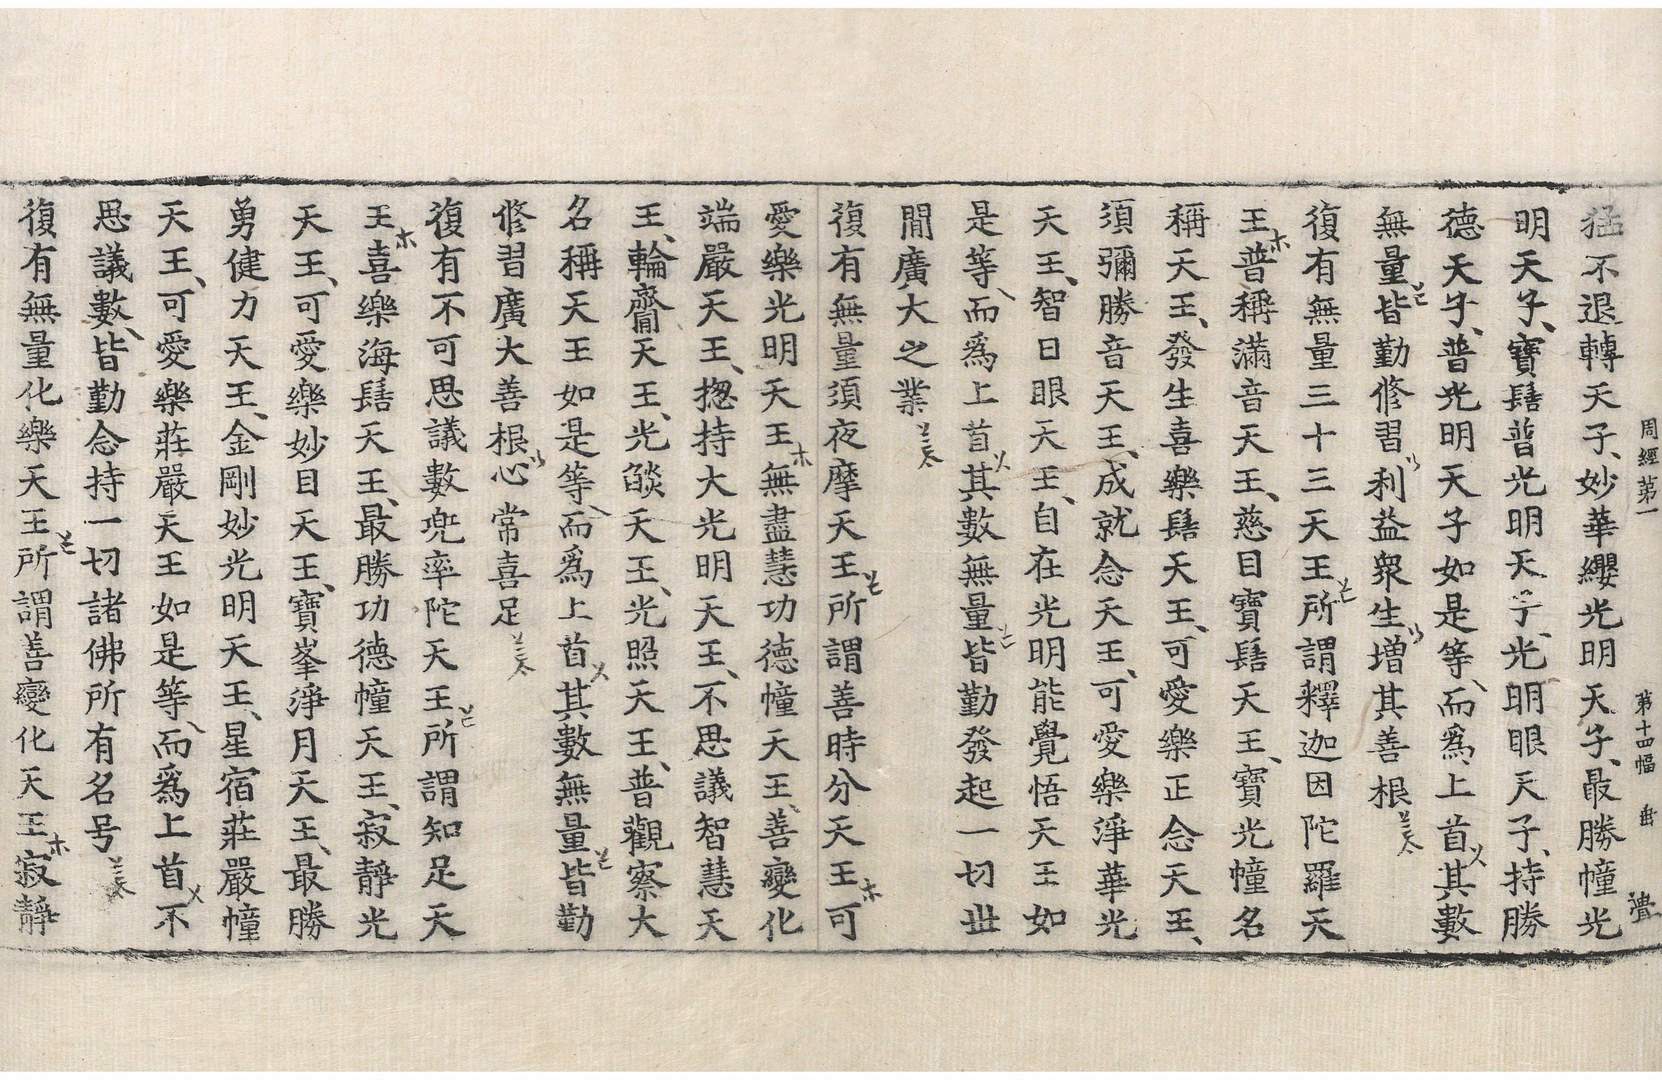 周經第一 第十四幅 𡸁
猛不退轉天子、妙華纓光明天子、最勝幢光
明天子、寶髻普光明天子、光明眼天子、持勝
德天子、普光明天子如是等、而爲上首其數
無量皆勤修習利益衆生增其善根
復有無量三十三天王所謂釋迦因陀羅天
王普稱滿音天王、慈目寶髻天王、寶光幢名
稱天王、發生喜樂髻天王、可愛樂正念天王、
須彌勝音天王、成就念天王、可愛樂淨華光
天王、智日眼天王、自在光明能覺悟天王如
是等、而爲上首其數無量皆勤發起一切世
閒廣大之業
復有無量須夜摩天王所謂善時分天王可
愛樂光明天王無盡慧功德幢天王、善變化
端嚴天王、揔持大光明天王、不思議智慧天
王、輪齎天王、光燄天王、光照天王、普觀察大
名稱天王如是等、而爲上首其數無量皆勤
修習廣大善根心常喜足
復有不可思議數兜率陀天王所謂知足天
王喜樂海髻天王、最勝功德幢天王、寂靜光
天王、可愛樂妙目天王、寶峯淨月天王、最勝
勇健力天王、金剛妙光明天王、星宿莊嚴幢
天王、可愛樂莊嚴天王如是等、而爲上首不
思議數、皆勤念持一切諸佛所有名号
復有無量化樂天王所謂善變化天王寂靜